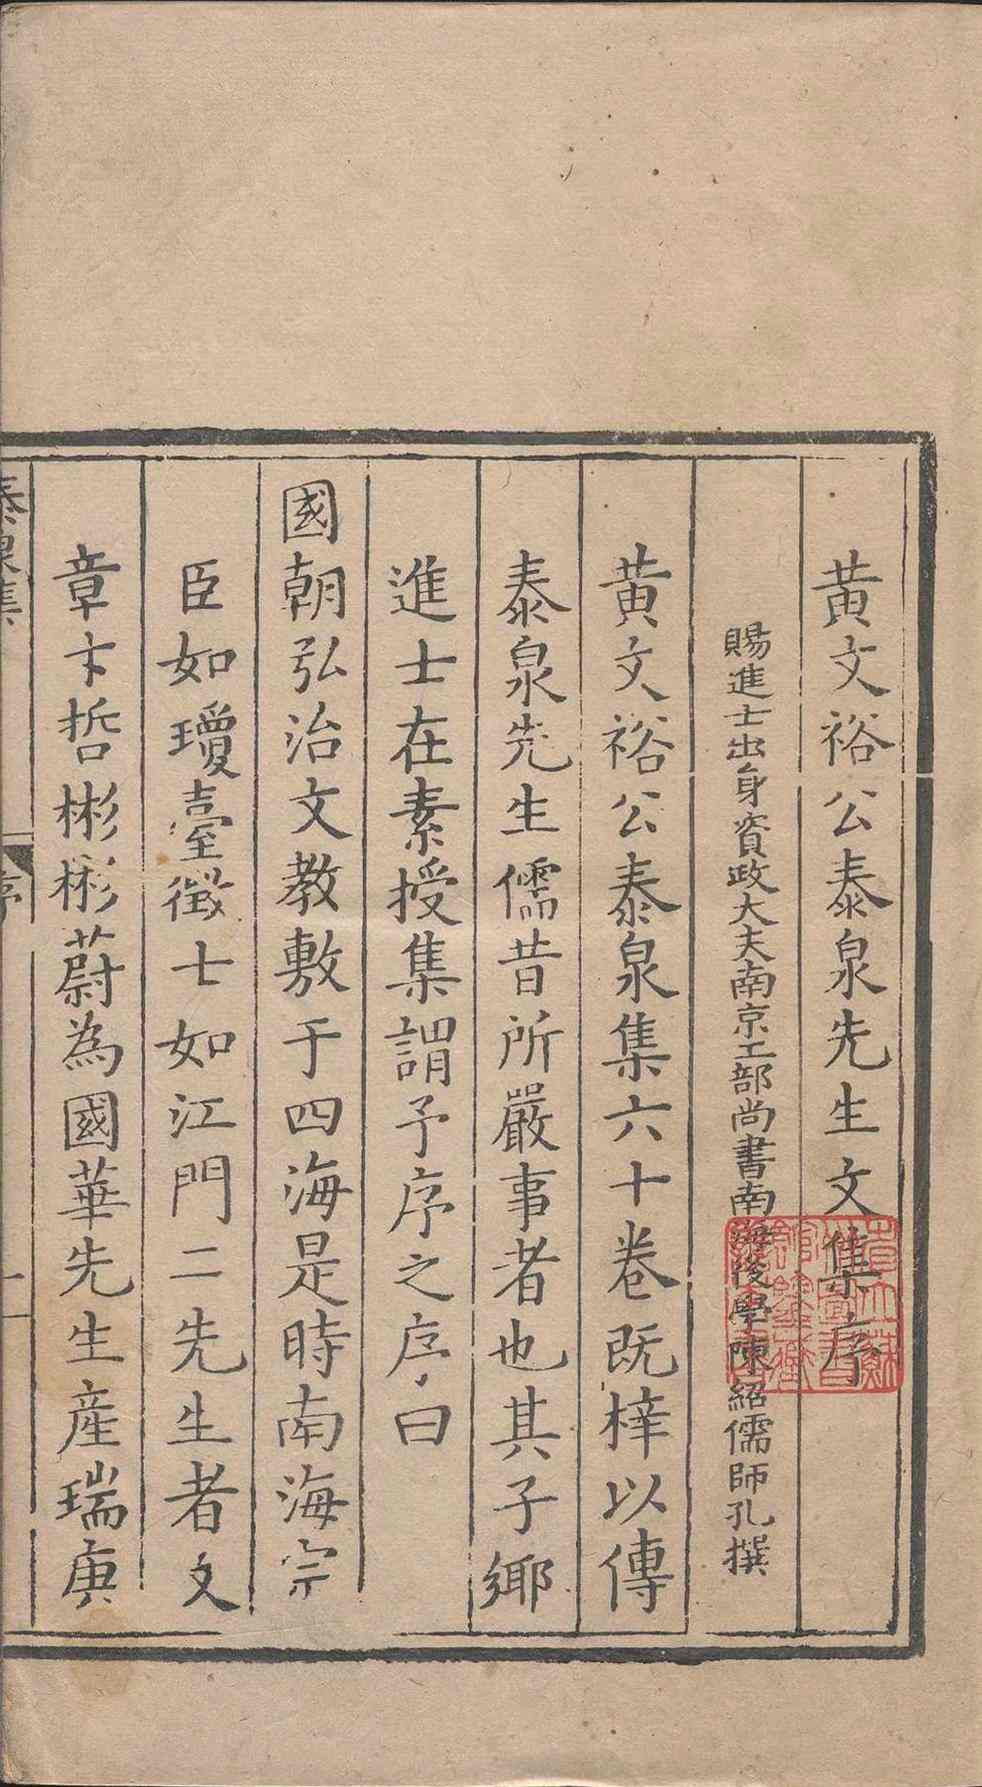 黃文裕公泰泉先生文集序
賜進士出身資政大夫南京工部尚書南海後學陳紹儒師孔撰
黃文裕公泰泉集六十卷既梓以傳
泰泉先生儒昔所嚴事者也其子鄉
進士在素授集謂予序之序曰
國朝弘治文教敷于四海是時南海宗
臣如瓊臺徵士如江門二先生者文
章卞哲彬彬蔚為國華先生產瑞庚
泰泉集 序 一